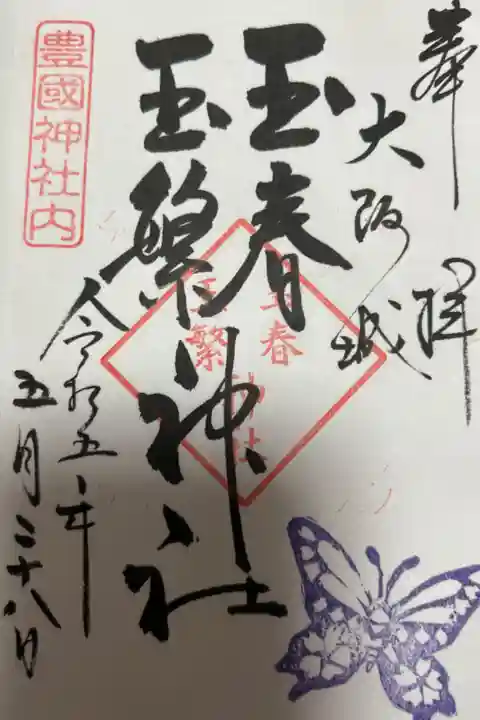 奉拝
大阪城
玉春
玉繁
神社
玉春
玉繁
神社
豊國神社内
令和五年
五月二十八日